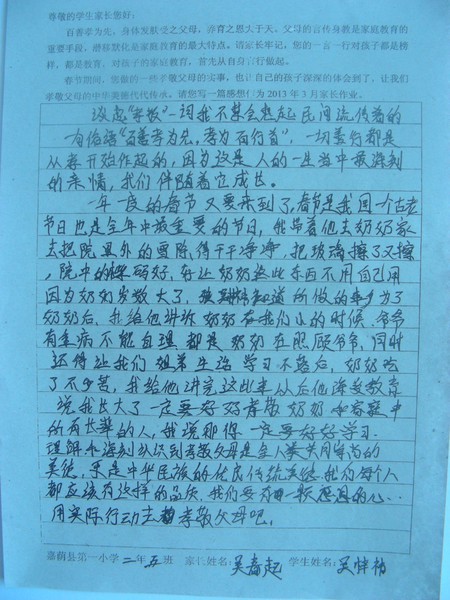 尊敬的学生家长您好:
百善孝为先,身体发肤受之父母,养育之恩大于天,父母的言传身教是家庭教育的
重要手段,潜移默化是家庭教育的最大特点。请家长牢记,您的一言一行对孩子都是榜
样,都是教育,对孩子的家庭教育,首先从自身言行做起。
春节期间,您做的一些孝敬父母的实事,也让自己的孩子深深的体会到了,让我们
孝敬父母的中华美德代代传承。请您写一篇感想作为2013年3月家长作业。
谈起“孝敬”一词我不禁会想起民间流传着的
一句俗语“百善孝为先,孝为百行首”,一切善行都是
从孝开始作起的,因为这是人的一生当中最深刻
的亲情,我们伴随着它成长。
一年一度的春节又要来到了,春节是我国一个古老
节日也是全年中最重要的节日,我带着他去奶奶家
去把院里外的雪除得干干净净,把玻璃擦了又擦
,院中的码好,好让奶奶
因为奶奶岁数大了,知道所做的为了
奶奶后,我给他讲诉奶奶在我们小的时候,爷爷
有病不能自理都是奶奶在照顾爷爷,同时
还得让我们姐弟生活学习不落后,奶奶吃
了不少苦,我给他讲完这些事从后他深受教育
说我长大了一定要好好孝敬奶奶和家庭中
的所有长辈的人,我说那你一定要好好学习.
理解外深刻认识到孝敬父母是全人类共同崇尚的
美德,更是中华民族的优良传统美德.我们每个人
都应该有这样的品质,我们要有一颗感恩的心…
用实际行动去孝敬父母吧.
嘉荫县第一小学二年五班 家长姓名:吴春起 学生姓名:吴